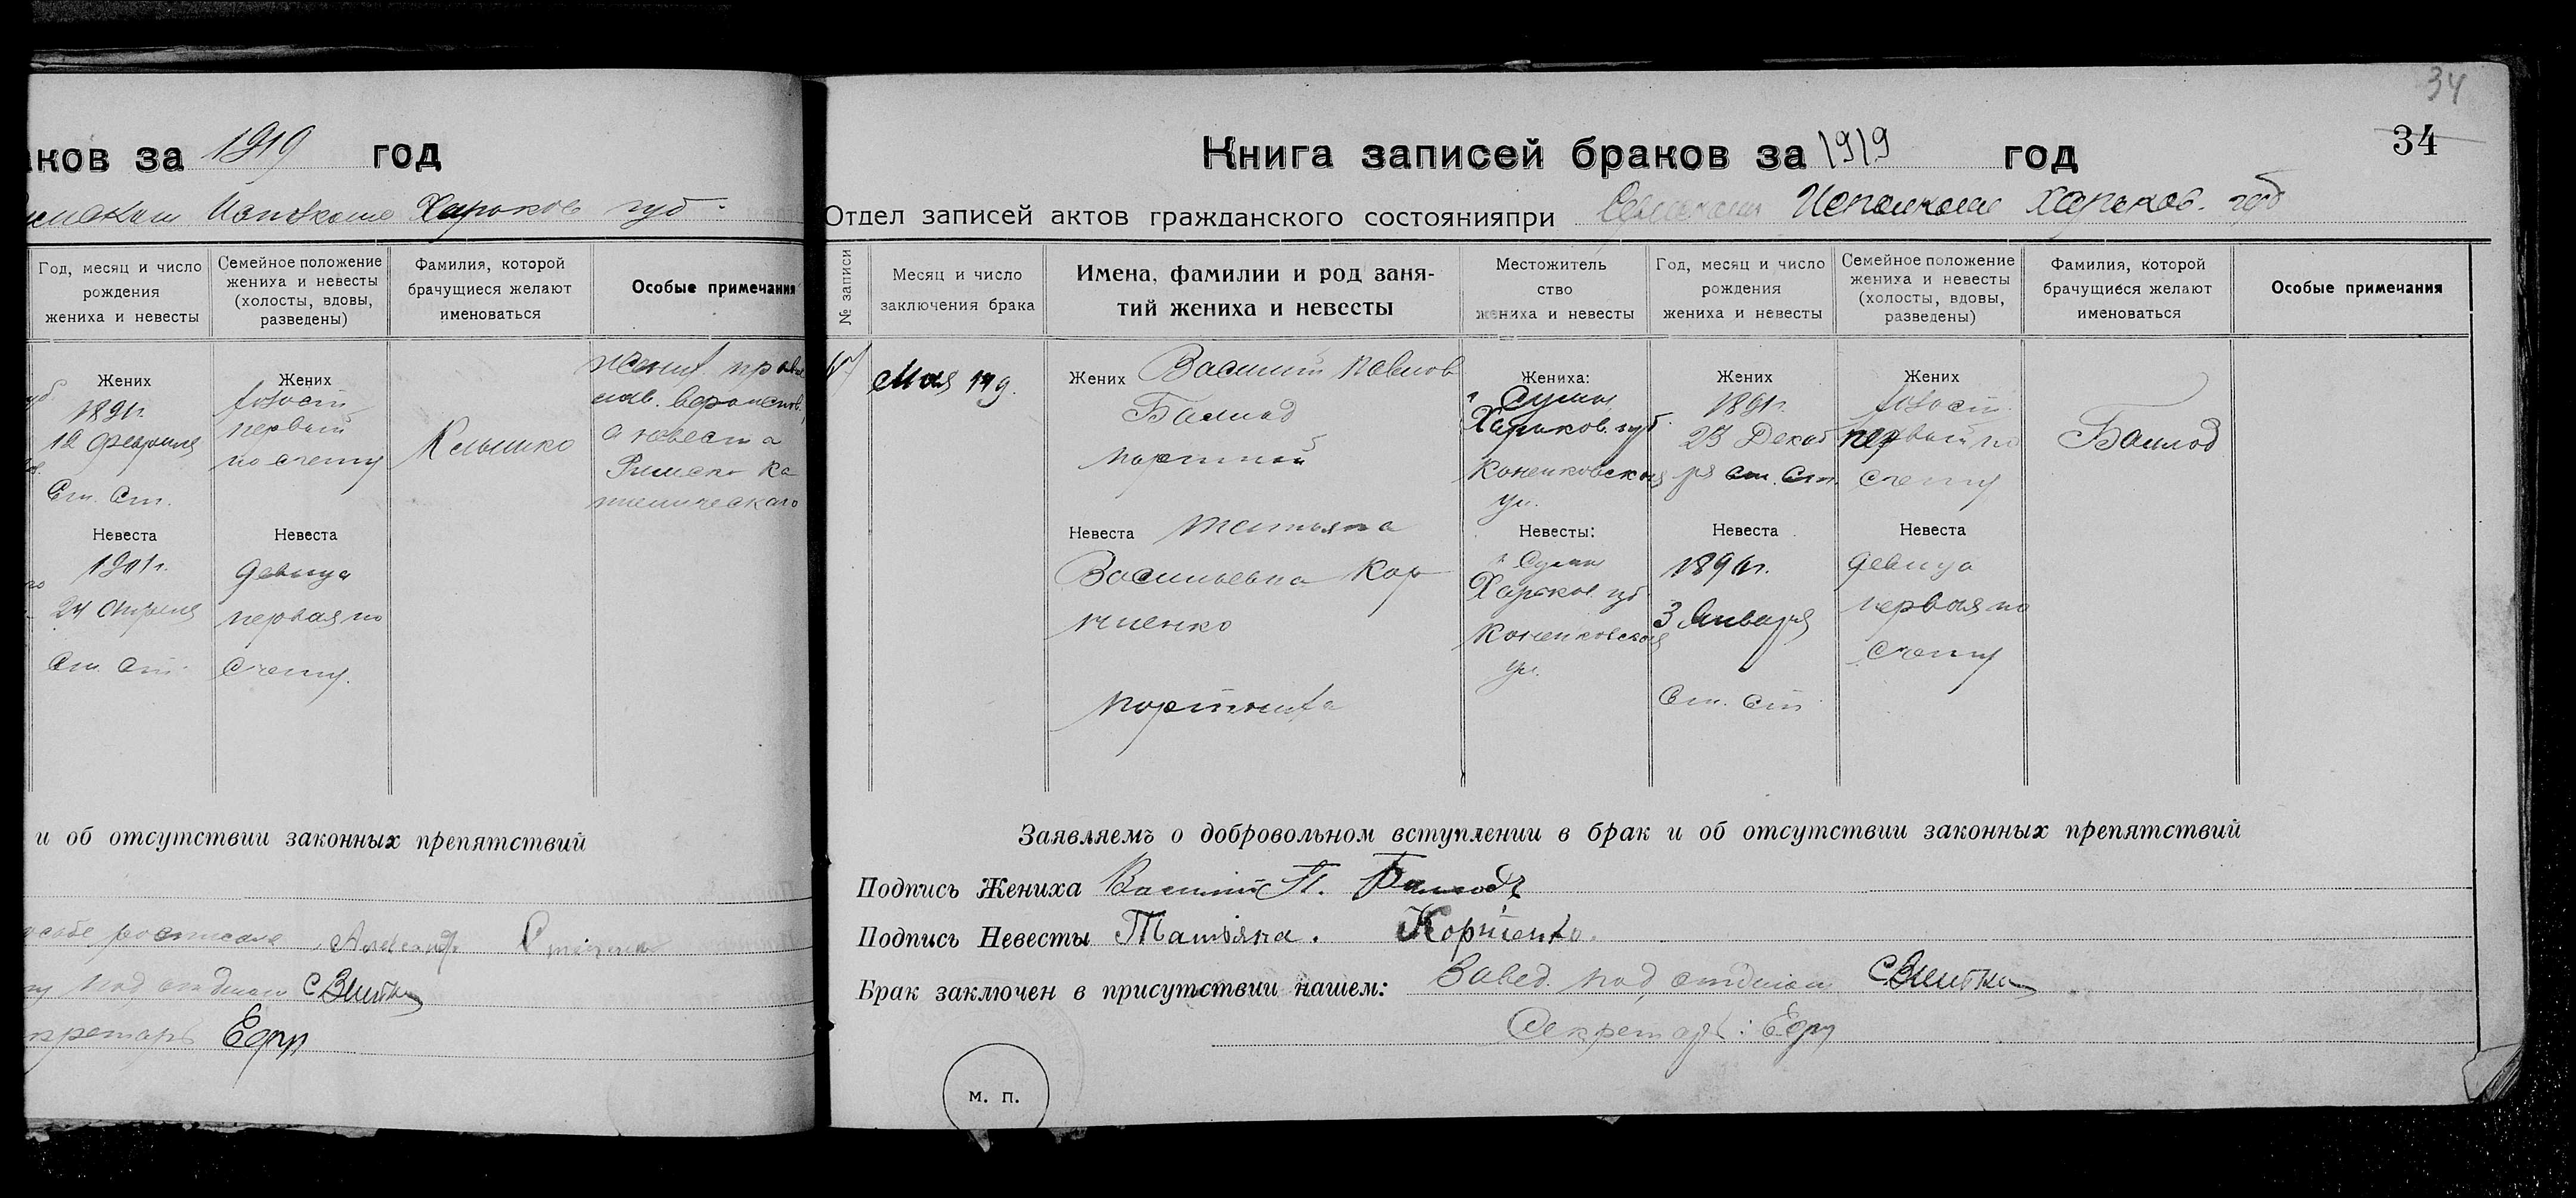 аков за 1919 год
Исполкоме Харьков губ.
Год, месяц и число рождения жениха и невесты
Семейное положение жениха и невесты (холосты, вдовы, разведены)
Фамилия, которой брачущиеся желают именоваться
Особые примечания
Жених
1891г.
12 Февраля
Ст. Ст.
Жених
холост
первый
по счету
Клышко
жених право
слав.
а невеста
Римско ка
толического
Невеста
1901г.
24 Апреля
Ст. Ст.
Невеста
девица
первая по
счету.
и об отсутствии законных препятствий
росписала Александр
под отделом
Секретарь
34
34
Книга записей браков за 1919 год
Отдел записей актов гражданского состоянияпри Сумском Исполкоме Харьков. губ
№ записи
Месяц и число заключения брака
Имена, фамилии и род заня-
тий жениха и невесты
Местожитель
ство
жениха и невесты
Год, месяц и число
рождения
жениха и невесты
Семейное положение
жениха и невесты
(холосты, вдовы,
разведены)
Фамилия, которой
брачущиеся желают
именоваться
Особые примечания
Мая 19 д.
Жених Василий Павлов
Портной
Жениха:
г Сумы
Харьков. губ.
ул.
Жених
1891г.
23 Декаб
ря ст. Ст.
Жених
холост
первый по
счету
Невеста Татьяна
Васильевна Кор
ниенко
портниха
Невесты:
г Сумы
Харьков. губ
ул.
Невеста
1896г.
3 Января
Ст. Ст.
Невеста
девица
первая по
счету
Заявляемъ о добровольном вступлении в брак и об отсутствии законных препятствий
Подпись Жениха Василий П.
Подпись Невесты Татьяна. Корниенко.
Брак заключен в присутствии нашем: Завед. под, отделом
Секретарь:
м. п.